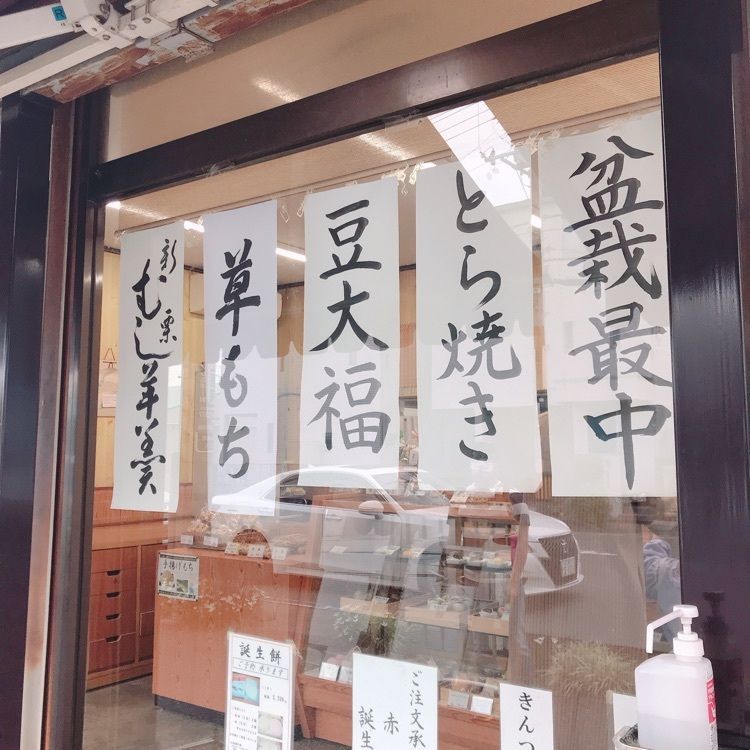 盆栽最中
とら焼き
豆大福
草もち
新栗
むし羊羹
手揚げもち
誕生餅
ご予約承ります
ご注文承
赤
誕生
きんつ